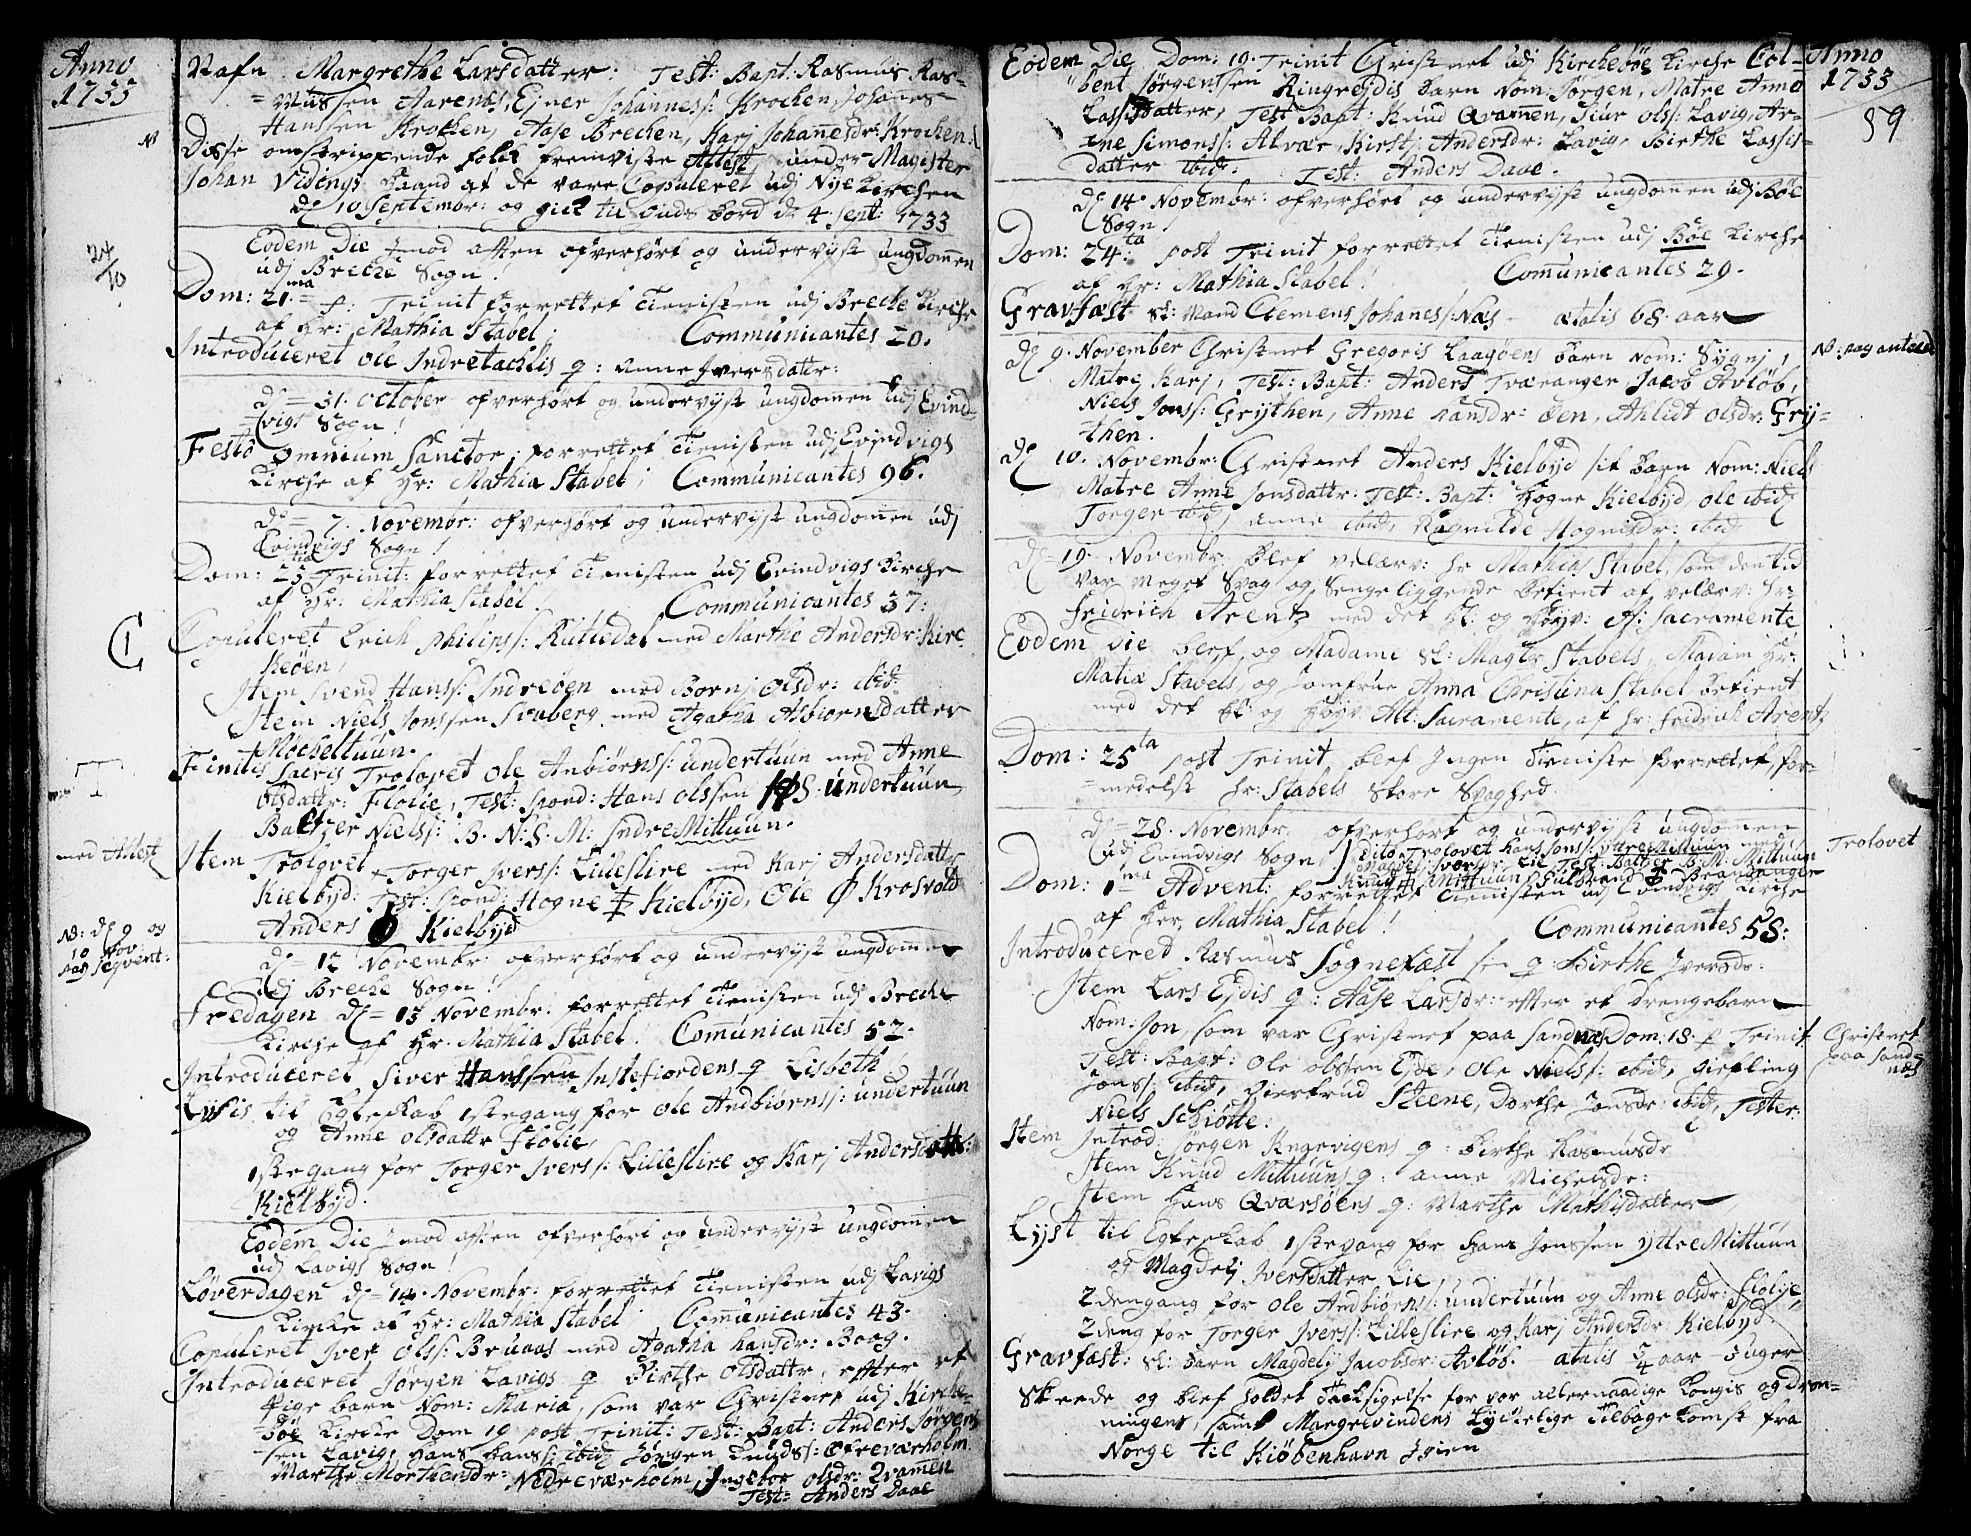 Anno
1733
Nafn Margrethe Larsdatter: Test: Bapt: Rasmus Ras-
=mussen Aarenes, Ejner Johanness: Krochen, Johannes
Hanssen Krochen, Aase Brechen, Karj Johannesdr: Krochen.
NB
Disse omstrippende folch fremviiste Attest under Magister
Johan Vidings Haand at de vare Copuleret udj Nye Kirchen
d. 10 Septembr: og gick til Guds bord d. 4. Sept: 1733
24/10
Eodem Die imod aften ofverhørt og undervijst ungdommen
udj Breche Sogn!
Dom: 21.ma p. Trinit forrettet Tienisten udj Breche Kirche
af Hr: Mathia Stabel. Communicantes 20.
Introduceret Ole Indretachlis q: Anne Iversdattr:
d. 31. October ofverhørt og undervijst ungdommen udj Evind-
=vigs Sogn!
Festo Omnium Sanctor: forrettet Tienisten udj Evindvigs
Kirche af Hr: Mathia Stabel; Communicantes 96.
d. 7. Novembr: ofverhørt og undervijst ungdommen udj
Evindvigs Sogn!
Dom: 23.tia Trinit: forrettet Tienisten udj Evindvigs Kirche
af Hr: Mathia Stabel! Communicantes 37:
Copuleret Erich Philips: Rutledal med Marthe Andersdr: Kirc
keøen,
Item Svend Hanss: Indreøen med Bornj Olsdr: ibid:
Item Niels Jonssen med Agatha Asbiørnsdatter
Møcheltuun.
Finitis Sacris Trolovet Ole Anbiørns: undertuun med Anne
Olsdattr: Flolie, Test: Spond: Hans Olssen HOS undertuun
Baltzer Nielss: B.N:S.M: Indre Mittuun.
med Attest
Item Trolovet Torger Ivers: Lilleslire med Karj Andersdattr
Kielbyd: Test: Spond: Hogne Kielbyd, Ole Krosvold
Anders Kielbyd
NB: d. 9 og
10 Nov:
paa seqvent:
d. 12 Novembr: ofverhørt og undervijst ungdommen
udj Breche Sogn!
Fredagen d. 13 Novembr: forrettet Tienisten udj Breche
Kirche af Hr. Mathia Stabel! Communicantes 52.
Introduceret Siver Hanssen Instefiordens q Lisbeth
Lysis til Egteskab 1ste gang for Ole Andbiørns: undertuun
og Anne Olsdattr Flolie,
1ste gang for Torger Ivers: Lilleslire og Karj Andersdattr:
Kielbyd.
Eodem Die imod aften ofverhørt og undervijst ungdommen
udj Lavigs Sogn!
Løverdagen d. 14. Novembr: forrettet Tienisten udj Lavigs
Kirche af Hr: Mathia Stabel Communicantes 43.
Copuleret Iver Olss: Bruaas med Agatha Hansdr: Boag.
Introduceret Jørgen Lavigs q Birthe Olsdattr, efter et
Pige barn Nom: Maria, som var Christnet udj Kirche-
bøe Kirche Dom 19 post Trinit: Test: Bapt: Anders Jørgen
sen Lavig, Hans Hans: ibid, Jørgen Knuds: Øfreværholm
Marthe Mortensdr: Nedreværholm, Ingebor Olsdr: Qvamen
Test: Anders Daae
Eodem Die Dom: 19. Trinit Christnet udj Kirchebøe Kirche Col-
bent Jørgenssen Ringrejdis barn Nom: Jørgen, Matre Anne
Lassisdatter, Test Bapt: Knud Qvamen, Siur Ols: Lavig, Ar-
ne Simons: Alvær, Kirstj Andersdr: Lavig, Birthe Lassis-
datter ibid: Test: Anders Daae.
Anno
1733
89
d. 14 Novembr: ofverhørt og undervijst ungdommen udj Bøe
Sogn!
Dom: 24.ta post Trinit forrettet Tienisten udj Bøe Kirche
af Hr: Mathia Stabel! Comunicantes 29.
Gravfæst Sl: Mand Clemens Johaness: Næs ætatis 68 aar
d. 9. November Christnet Gregoris Laagøens barn Nom: Sygnj,
Matre Karj, Test: Bapt: Anders Tværanger Jacob Avløb,
Niels Jons: Grythen, Anne Hansdr: Øen, Ahledt Olsdr: Gry-
then.
d. 10. Novembr: Christnet Anders Kielbyd sit barn Nom: Niels
Matre Anne Jonsdattr: Test: Bapt: Hogne Kielbyd, Ole ibid
Torger ibid, Anne ibid, Ragnilde Hognesdr: ibid
d. 19. Novembr. blef velærv: Hr Mathias Stabel, som den tid
var meget Svag og Sengeliggende betient af velærv: Hr
Fridrich Arentz med det H: og Højv: Al: Sacramente
Eodem Die blef og Madame Sl: Magtr Stabels, Madam Hr:
Matia Stabels, og Jomfrue Anna Christina Stabel betient
med det H: og Højv: Alt: Sacramente, af Hr: Fridrich Arentz
Dom: 25ta post Trinit, blef Ingen Tieniste forrettet, for-
=medelst Hr: Stabels Store Svaghed.
d. 28. Novembr. ofverhørt og undervijst ungdommen
udj Evindvigs Sogn! dito Trolovet Hans Jons: yttre Mittuun med
Magdelj Iversdr: Lie Test: Baltzer B.M: Mittuun
Knud Mittuun, Brandanger
Trolovet
Dom: 1.ma Advent: forrettet Tienisten udj Evindvigs Kirche
af Her Mathia Stabel! Communicantes 58:
Introducered Rasmus Sognefæst sin q Birthe Iversdr:
Item Lars Ejdis q: Aase Larsdr: efter et drengebarn
Nom: Jon, som var Christnet paa Sandnæs Dom: 18. p Trinit.
Test: Bapt: Ole Olssen Ejde, Ole Niels: ibid, Giefling
Jons: ibid, Giertrud Steene, Dorthe Jonsdr: ibid, Tester:
Niels Schiøtte:
Christnet
paa Sand-
næs
Item Introd: Jørgen Knarvigens q: Birthe Rasmusdr
Item Knud Mittuuns q: Anne Michelsdr:
Item Hans Qværsøens q: Marthe Mathisdatter
Lyst til Egteskab 1ste gang for Hans Jonssen yttre Mittuun
og Magdelj Iversdatter Lie,
2den gang for Ole Andbiørns: undertuun og Anne Olsdr: Flolie,
2deng for Torger Ivers: Lilleslire og Karj Andersdr: Kielbyd
Gravfæst: Sl: barn Magdelj Jacobsdr: Avløb. ætatis 3/4 aar 3 uger
Skeede og blef holdet Tacksigelse for vor allernaadige Kongis og Dron-
ningens, samt Margrevindens Lyckelige Tilbage komst fra
Norge til Kiøbenhavn Igien